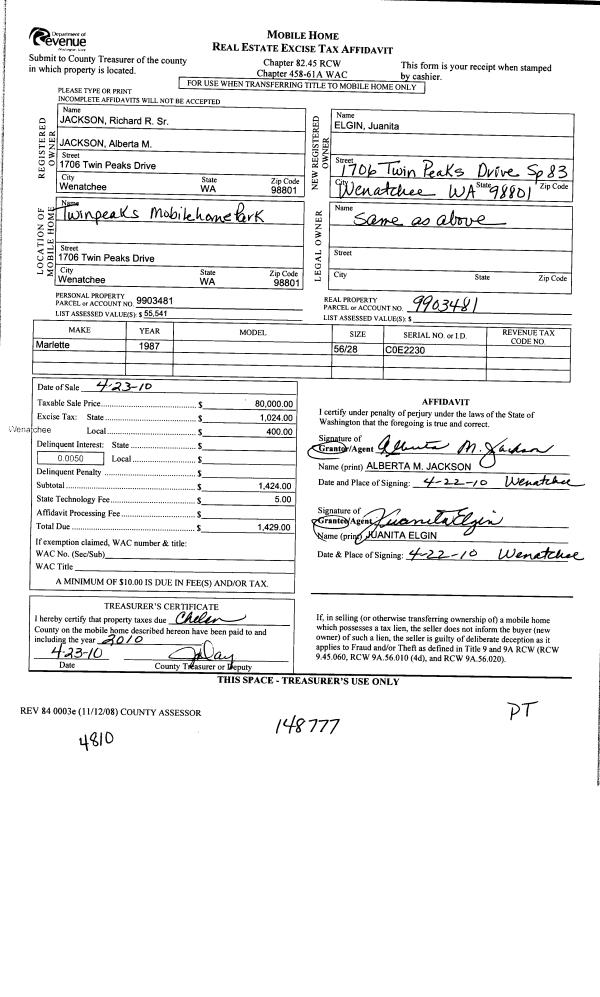 Department of
Revenue
Washington State
MOBILE HOME
REAL ESTATE EXCISE TAX AFFIDAVIT
Submit to County Treasurer of the county
in which property is located.
Chapter 82.45 RCW
Chapter 458-61A WAC
This form is your receipt when stamped
by cashier.
FOR USE WHEN TRANSFERRING TITLE TO MOBILE HOME ONLY
PLEASE TYPE OR PRINT
INCOMPLETE AFFIDAVITS WILL NOT BE ACCEPTED
REGISTERED OWNER
Name
JACKSON, Richard R. Sr.
JACKSON, Alberta M.
Street
1706 Twin Peaks Drive
City State Zip Code
Wenatchee WA 98801
NEW REGISTERED OWNER
Name
ELGIN, Juanita
Street 1706 Twin Peaks Drive Sp 83
City State Zip Code
Wenatchee WA 98801
LOCATION OF MOBILE HOME
Name
Twinpeaks Mobilehome Park
Street
1706 Twin Peaks Drive
City State Zip Code
Wenatchee WA 98801
LEGAL OWNER
Name
Same as above
Street
City State Zip Code
PERSONAL PROPERTY
PARCEL or ACCOUNT NO. 9903481
LIST ASSESSED VALUE(S): $ 55,541
REAL PROPERTY
PARCEL or ACCOUNT NO. 9903481
LIST ASSESSED VALUE(S): $
MAKE YEAR MODEL SIZE SERIAL NO. or I.D. REVENUE TAX CODE NO.
Marlette 1987 56/28 C0E2230
Date of Sale 4-23-10
Taxable Sale Price $ 80,000.00
Excise Tax: State $ 1,024.00
Wenatchee Local $ 400.00
Delinquent Interest: State $
0.0050 Local $
Delinquent Penalty $
Subtotal $ 1,424.00
State Technology Fee $ 5.00
Affidavit Processing Fee $
Total Due $ 1,429.00
If exemption claimed, WAC number & title:
WAC No. (Sec/Sub)
WAC Title
A MINIMUM OF $10.00 IS DUE IN FEE(S) AND/OR TAX.
AFFIDAVIT
I certify under penalty of perjury under the laws of the State of
Washington that the foregoing is true and correct.
Signature of
Grantor/Agent Alberta M. Jackson
Name (print) ALBERTA M. JACKSON
Date and Place of Signing: 4-22-10 Wenatchee
Signature of
Grantee/Agent Juanita Elgin
Name (print) JUANITA ELGIN
Date & Place of Signing: 4-22-10 Wenatchee
TREASURER'S CERTIFICATE
I hereby certify that property taxes due Chelan
County on the mobile home described hereon have been paid to and
including the year 2010
4-23-10
Date County Treasurer or Deputy
If, in selling (or otherwise transferring ownership of) a mobile home
which possesses a tax lien, the seller does not inform the buyer (new
owner) of such a lien, the seller is guilty of deliberate deception as it
applies to Fraud and/or Theft as defined in Title 9 and 9A RCW (RCW
9.45.060, RCW 9A.56.010 (4d), and RCW 9A.56.020).
THIS SPACE - TREASURER'S USE ONLY
REV 84 0003e (11/12/08) COUNTY ASSESSOR
4810
148777
PT